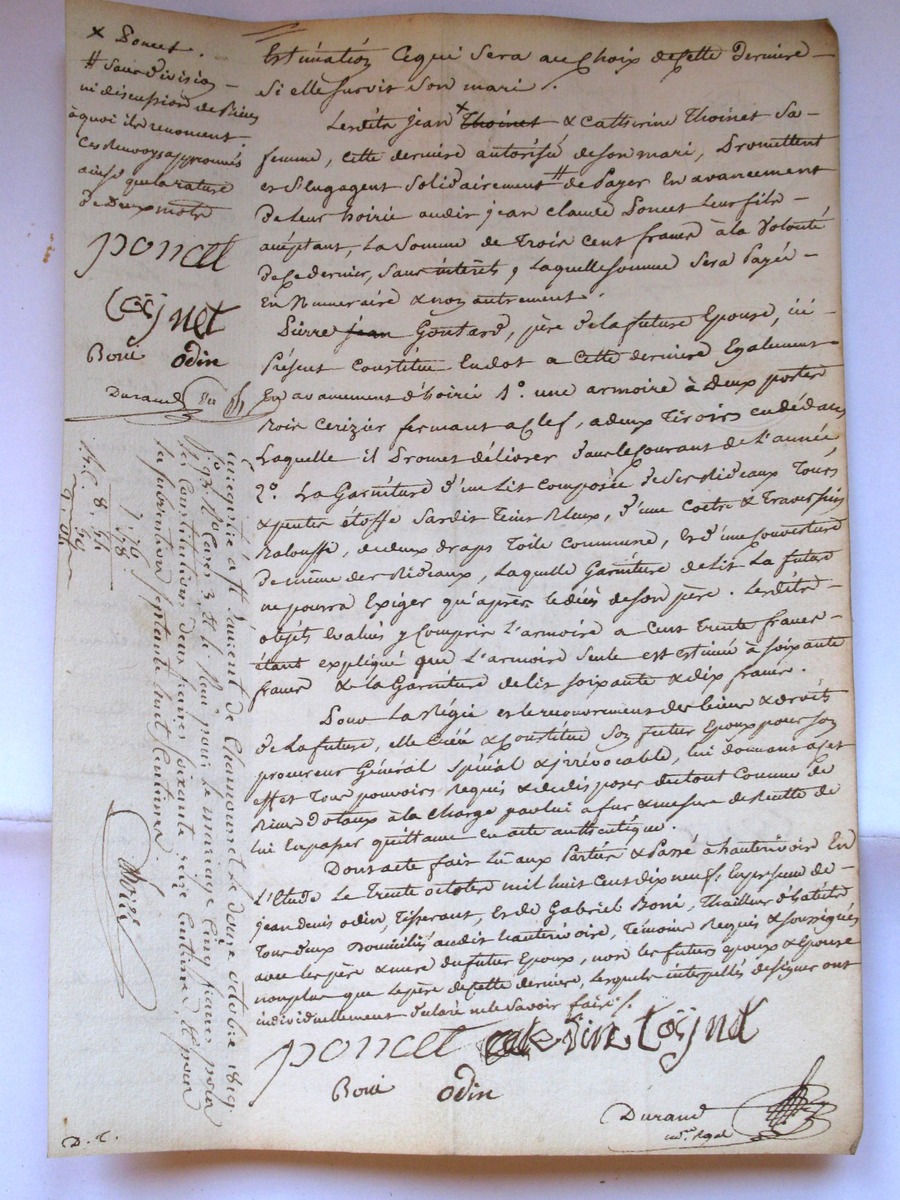 x Poncet.
# Sans division
ni discussion de biens
à quoi ils renoncent.
Ces Renvoys approuvés
ainsi que la rature
de deux mots
poncet
Coÿnet
Boni odin
Durand
Estimation Ce qui Sera au Choix de Cette Derniere
Si elle Survit Son mari.
Lesdits jean x Thoinet & Catherine Thoinet Sa
femme, Cette derniere autorisée de Son mari, Promettent
et S'engagent Solidairement # de Payer En avancement
de leur hoirie audit jean claude Poncet leur fils
acceptant, La Somme de Trois Cent francs à la Volonté
de Ce dernier, Sans intérêts, Laquelle Somme Sera Payée
En Numeraire & non autrement.
Pierre jean Goutard, père de la future Epouse, ici
Présent Constitue En dot a Cette derniere Egalement
En avancement d'hoirie 1°. une armoire à Deux portes
Bois Cerizier fermant a Clef, a deux Tiroirs en dedans
Laquelle il Promet délivrer dans le Courant de L'année
2°. La Garniture d'un Lit Composée de Ses Rideaux Tours
& pentes étoffe Sardis Teint Bleux, d'une Coëtre & Traversin
Balouffe, de deux draps Toile Commune, Et d'une Couverture
de même des Rideaux, Laquelle Garniture de Lit La future
ne pourra Exiger qu'après le décès de Son père. Lesdits
objets Evalués y Compris L'armoire a Cent Trente francs
étant expliqué que L'armoire Seule est Estimée à Soixante
francs & la Garniture de lit Soixante & dix francs.
Pour La Régie et le recouvrement des biens & droits
de La future, elle Créé & Constitue Son futur Epoux pour Son
procureur Général Spécial & irrévocable, lui donnant a Cet
effet Tous pouvoirs Requis & de disposer du tout Comme de
Biens dotaux à la Charge par lui à fur & mesure de Recette de
lui En passer quittance En acte authentique.
Dont acte fait Lû aux Parties & Passé à hauterivoire En
L'Etude Le Trente octobre mil huit Cent dix neuf: En presence de
jean Denis odin, Tisserant, Et de Gabriel Boni, Thailleur d'habits
Tous deux Domiciliés audit hauterivoire, Témoins Requis & Soussignés
avec les père & mere du futur Epoux, non les futurs epoux & Epouse
non plus que le père de Cette derniere, Lesquels interpellés de Signer ont
individuellement déclaré ne le Savoir faire.
poncet Caterine Coÿnet
Boni odin
Durand
no.re Royal
Enregistré à St Laurent de Chamousset Le douze octobre 1819
Reçu pour Le mariage Cinq francs, pour
les Constitutions deux francs Soixante Seize Centimes, & pour
la Subvention Septante huit Centimes.
D. C.